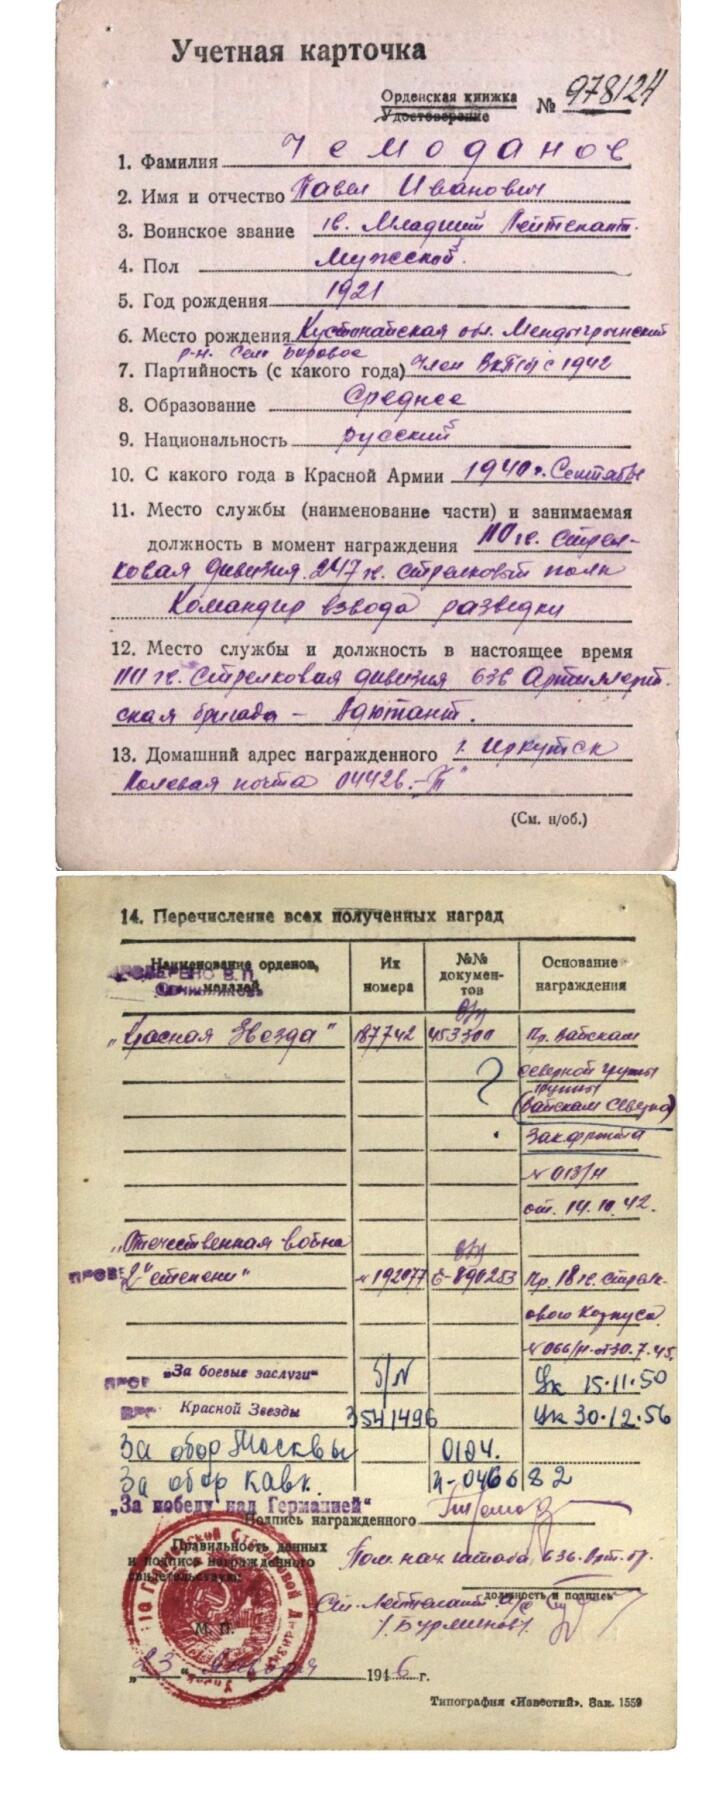 Учетная карточка
Орденская книжка
Удостоверение № 978124
1. Фамилия Чемоданов
2. Имя и отчество Павел Иванович
3. Воинское звание гв. Младший Лейтенант.
4. Пол Мужской.
5. Год рождения 1921
6. Место рождения Кустонайская обл. Мендыгрынский
р-н. Село Боровое
7. Партийность (с какого года) Член ВКП(б) с 1942
8. Образование Среднее
9. Национальность русский
10. С какого года в Красной Армии 1940 г. Сентябрь
11. Место службы (наименование части) и занимаемая
должность в момент награждения 110 гв. Стрел-
ковая дивизия. 247 гв. стрелковый полк
Командир взвода разведки
12. Место службы и должность в настоящее время
110 гв. Стрелковая дивизия 636 Артиллерий-
ская бригада - Адютант.
13. Домашний адрес награжденного г. Иркутск
Полевая почта 04426.-"Т"
(См. н/об.)
14. Перечисление всех полученных наград
Наименование орденов, медалей Их номера №№ документов Основание награждения
ПРОВЕРЕНО В.П.
"Красная Звезда" 187742 453300 Пр. Вайскам
северной групы
группы
(Вайскам Севера)
?
Закфронта
№ 013/н
от. 14.10.42.
"Отечественная война
2й степени" № 192077 Б-890253 Пр. 18 гв. стрел-
кового Корпуса.
№ 066/н-от 30.7.45.
"За боевые заслуги" б/N Ук 15.11.50
Красной Звезды 3541496 Ук 30.12.56
За обор Москвы 0184.
За обор Кавк. н-046682
„За победу над Германией"
Подпись награжденного
Правильность данных
и подпись награжденного
свидетельствую: Пом. нач. штаба 636. Арт. бр.
должность и подпись
Ст. Лейтенант
/. Бурминов/.
М. П.
"23" Января 1946 г.
Типография «Известий». Зак. 1559